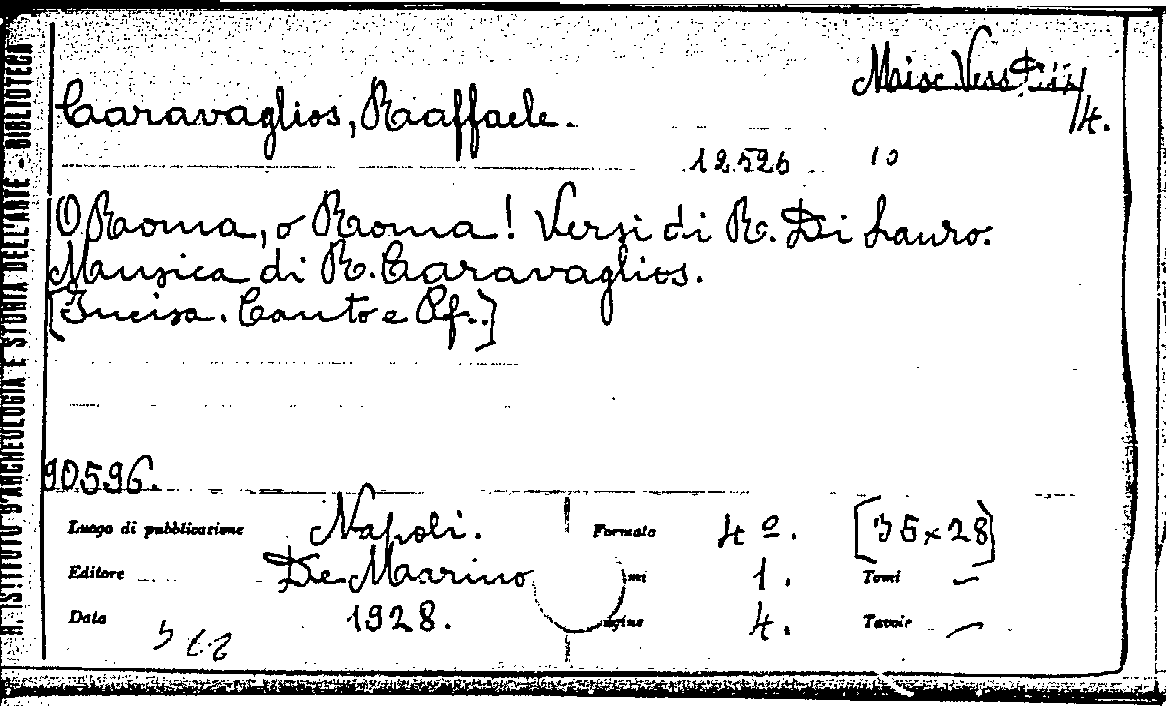 R. ISTITUTO D'ARCHEOLOGIA E STORIA DELL'ARTE - BIBLIOTECA
Misc. Vess
/4.
Caravaglios, Raffaele.
12526 10
O Roma, o Roma! Versi di R. Di Lauro.
Musica di R. Caravaglios.
[Incisa. Canto e Pf.]
90596.
Luogo di pubblicazione Napoli. Formato 4º. [35×28]
Editore De Marino 1. Tomi –
Data 1928. Pagine 4. Tavole –